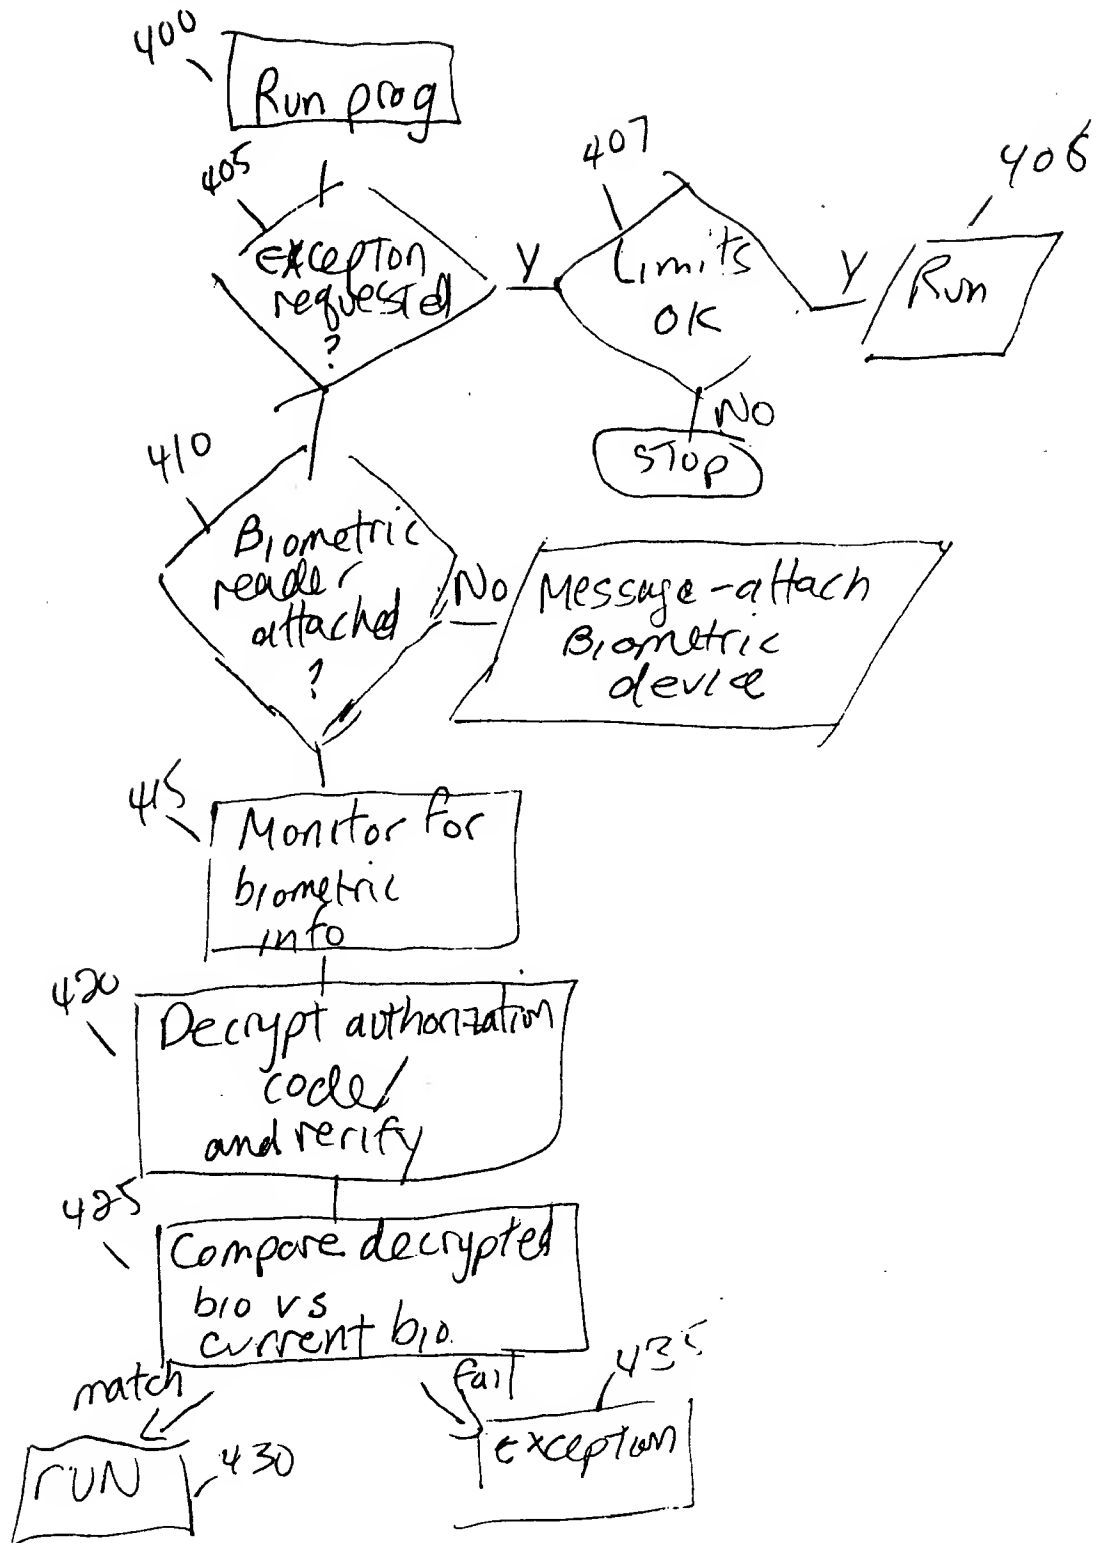 400
Run prog
405
Excepton
requested
?
Y
407
Limits
OK
Y
406
Run
NO
STOP
410
Biometric
reader
attached
?
No
Message-attach
Biometric
device
415
Monitor for
biometric
info
420
Decrypt authorization
code/
and verify
425
Compare decrypted
bio vs
current bio.
match
fail
435
exception
RUN
430